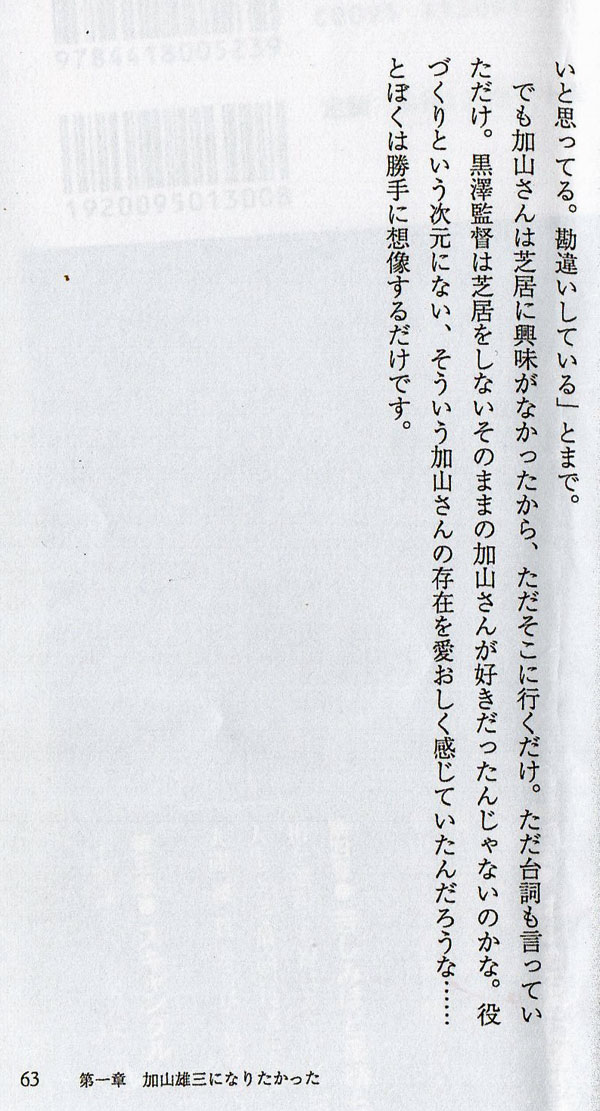 いと思ってる。勘違いしている」とまで。
でも加山さんは芝居に興味がなかったから、ただそこに行くだけ。ただ台詞も言ってい
ただけ。黒澤監督は芝居をしないそのままの加山さんが好きだったんじゃないのかな。役
づくりという次元にない、そういう加山さんの存在を愛おしく感じていたんだろうな……
とぼくは勝手に想像するだけです。
63 第一章 加山雄三になりたかった
9784418005239
1920095013008